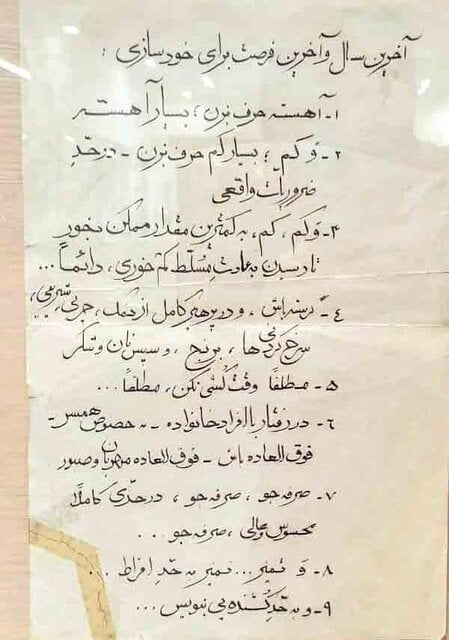 آخرین سال و آخرین فرصت برای خودسازی :
۱- آهسته حرف نزن ؛ بسیار آهسته
۲- وَ کم ؛ بسیار کم حرف بزن - در حدِ
ضروریات واقعی
۳- وَ کم ، کم ، به کمترین مقدار ممکن بخور
تا رسیدن به عادتِ مُسلّطِ کم خوری ، دائماً ...
٤- گرسنه باش ، و در پرهیز کامل از نمک ، چربی
سرخ کردنی ها ، برنج ، و سپس نان و شکر
۵- مطلقاً وقت کُشی نکن ، مطلقاً ...
۶- در رفتار با افراد خانواده - به خصوص همسر -
فوق العاده باش - فوق العاده مهربان و صبور
۷- صرفه جو ، صرفه جو ، در حدّی کاملاً
محسوس و عالی ، صرفه جو ...
۸- وَ تمیز ... تمیز به حدِ افراط ...
۹- و به حدِ کُشنده یی بنویس ...